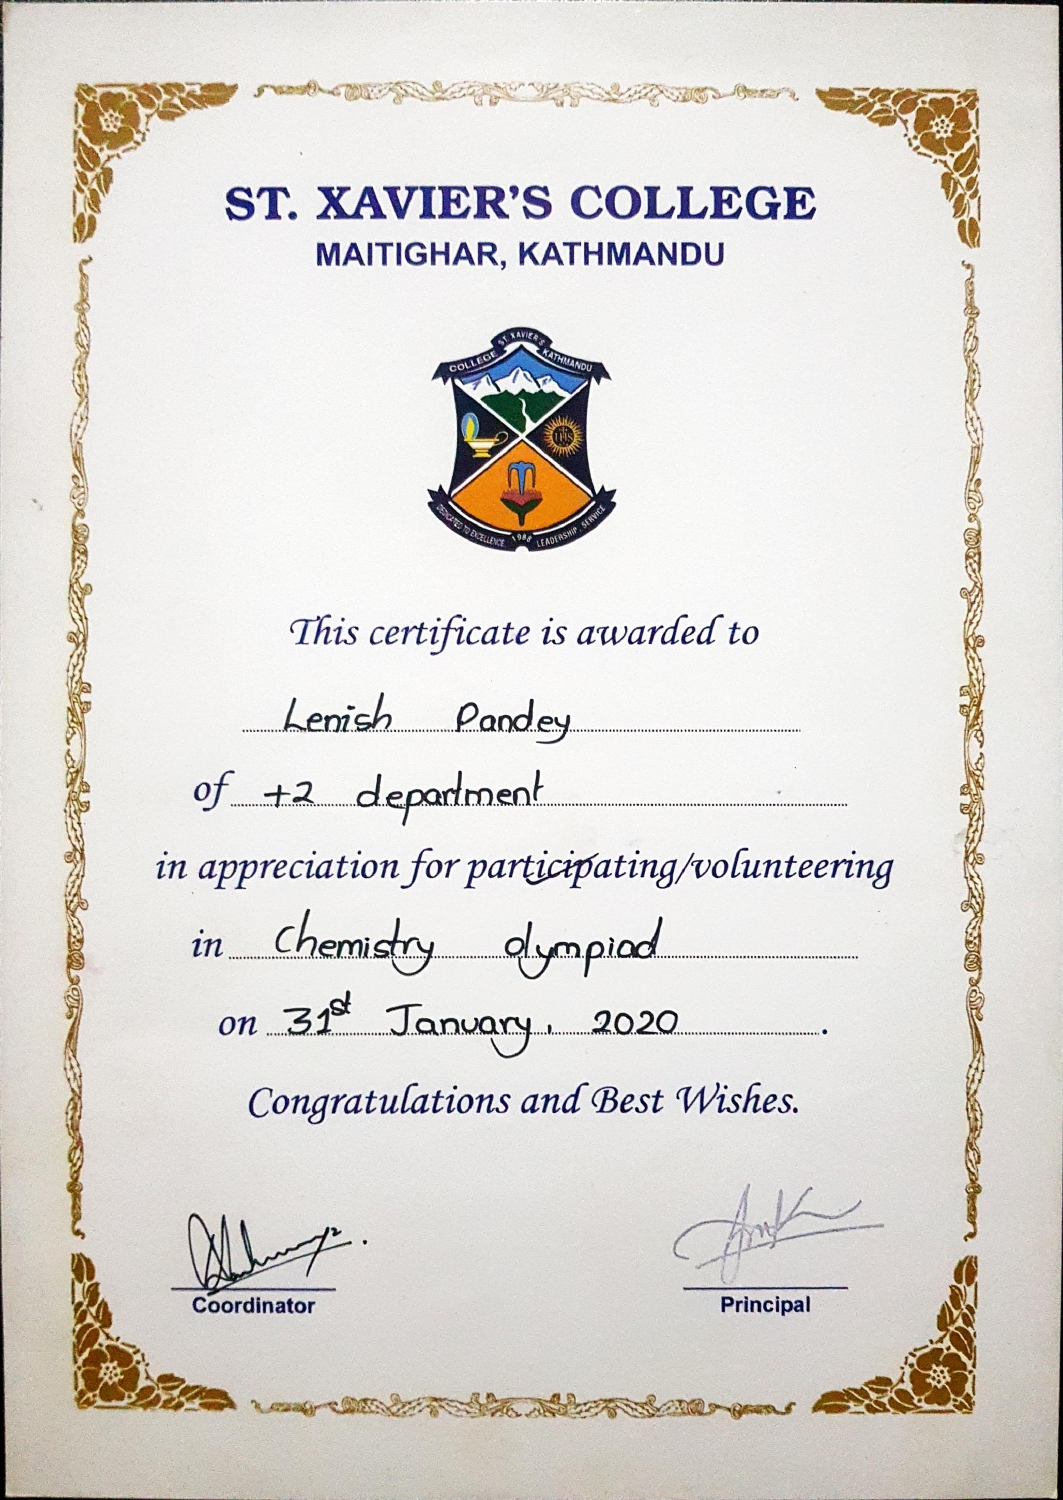 ST. XAVIER'S COLLEGE
MAITIGHAR, KATHMANDU
ST. XAVIER'S
COLLEGE KATHMANDU
IHS
DEDICATED TO EXCELLENCE, 1988 LEADERSHIP, SERVICE
This certificate is awarded to
Lenish Pandey
of +2 department
in appreciation for participating/volunteering
in Chemistry olympiad
on 31st January, 2020.
Congratulations and Best Wishes.
Coordinator
Principal